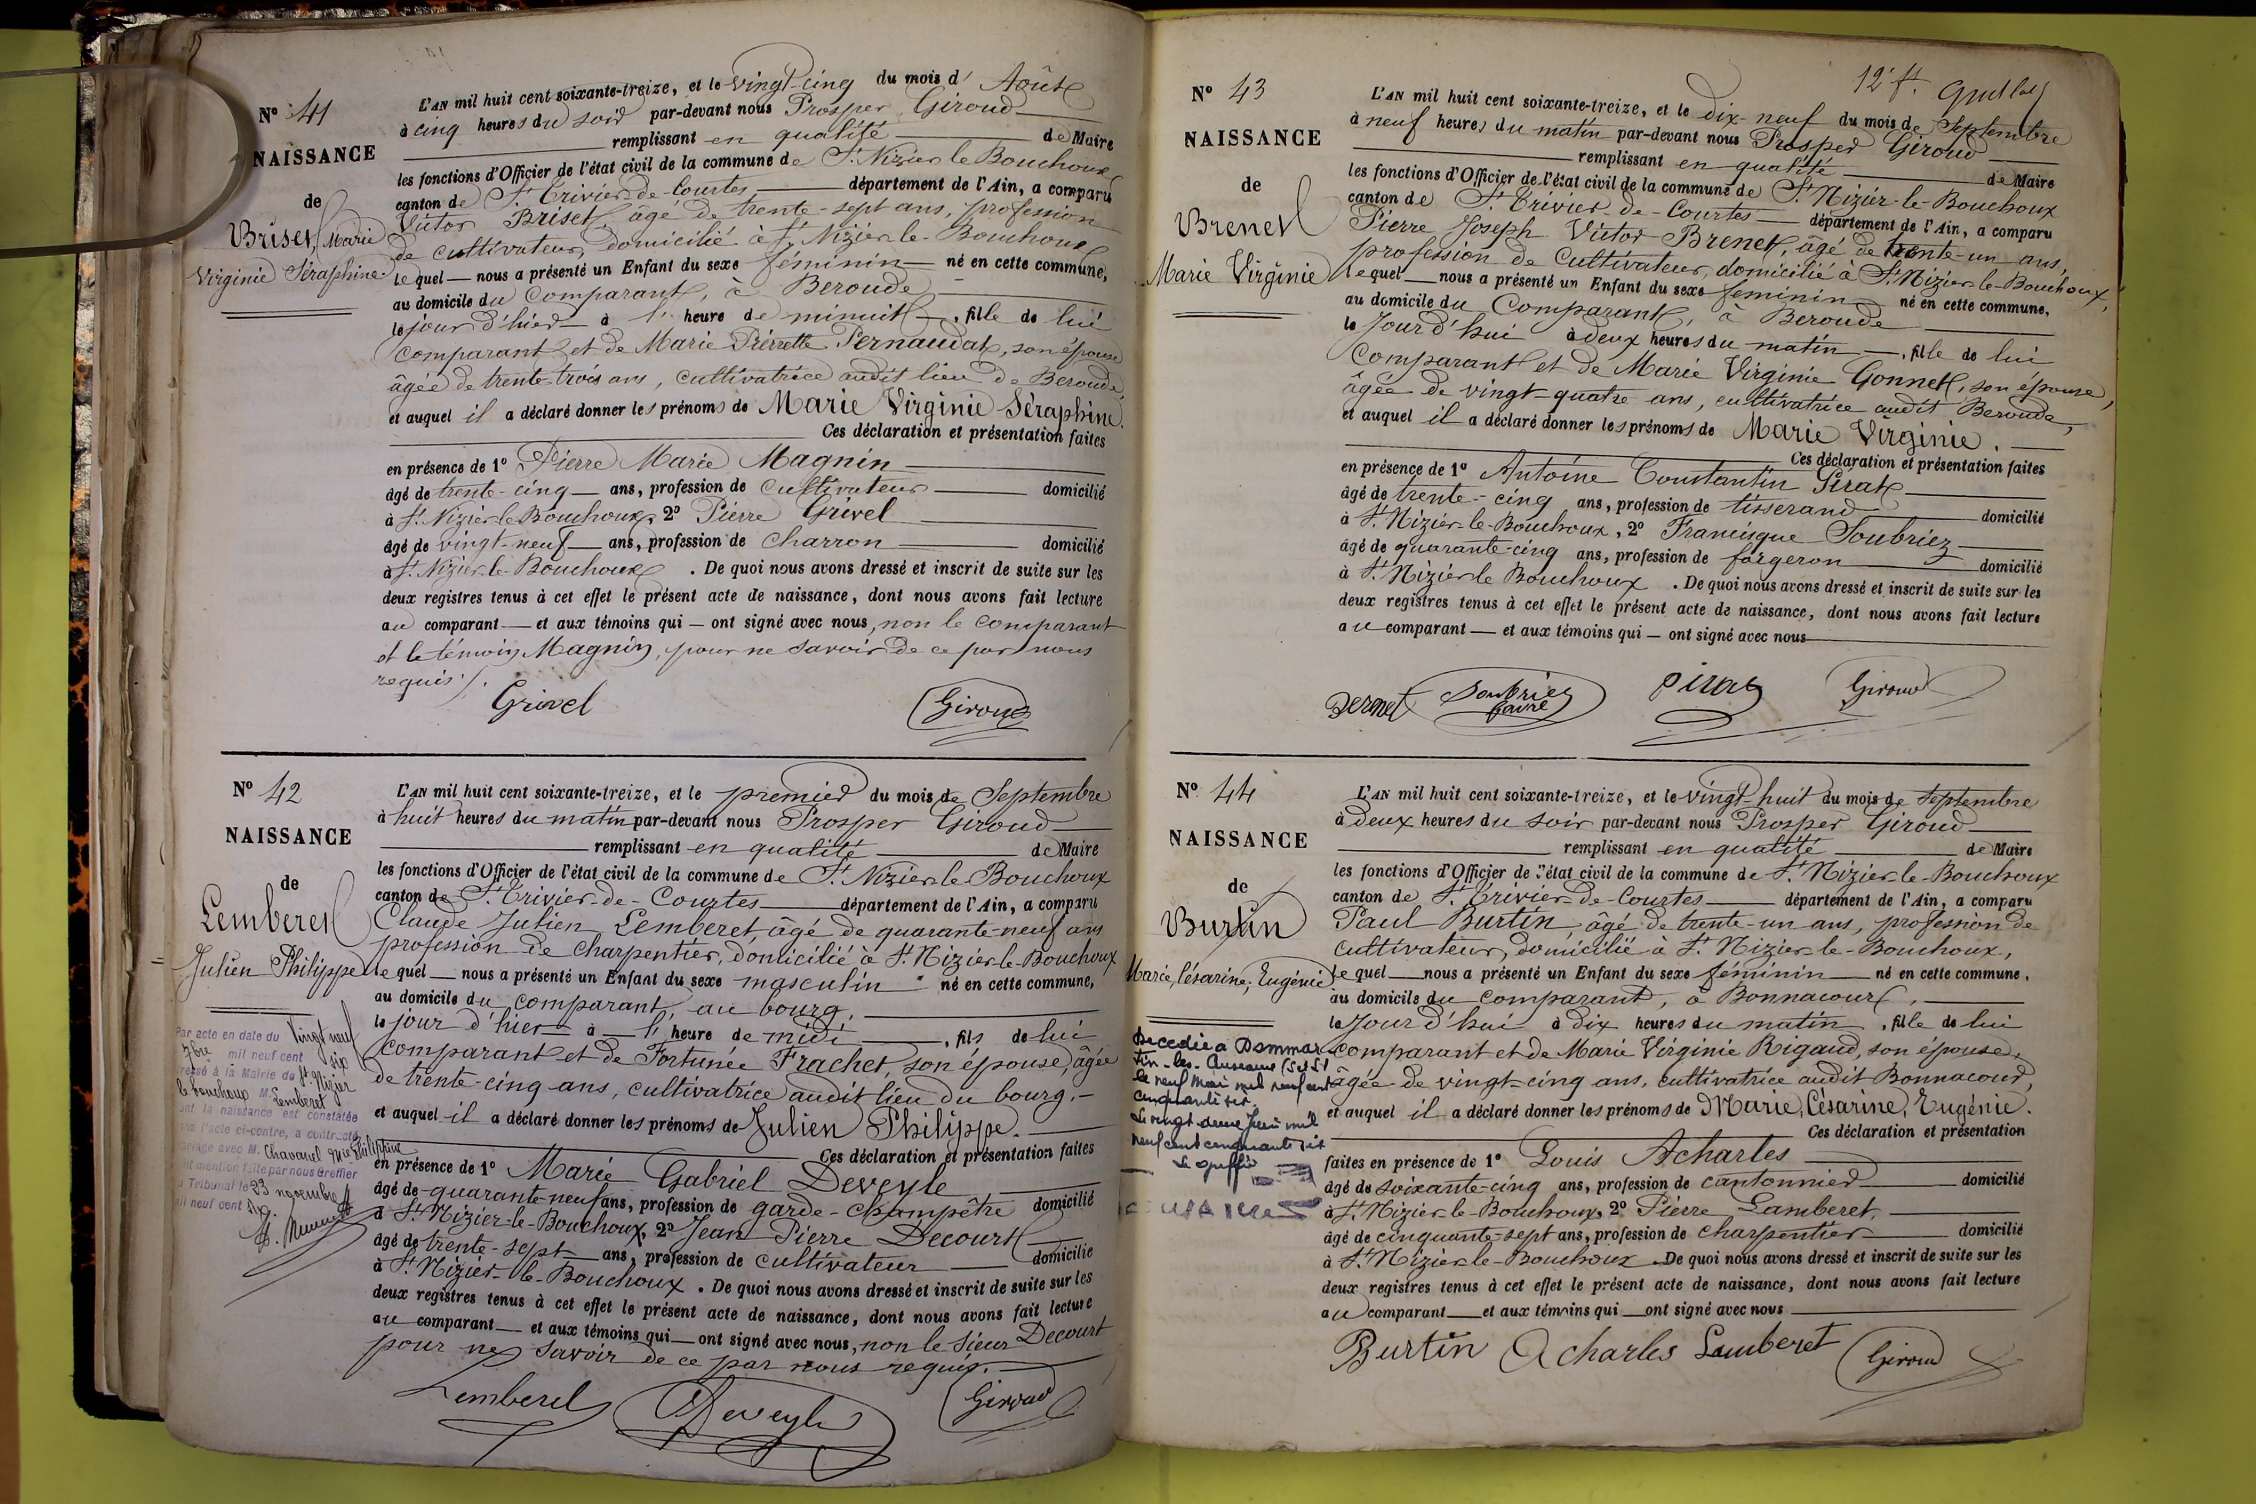 N° 41
NAISSANCE
de
Briset, Marie
Virginie Séraphine
L'AN mil huit cent soixante-treize, et le vingt-cinq du mois d'Août
à cinq heures du soir par-devant nous Prosper Giroud
remplissant en qualité de Maire
les fonctions d'Officier de l'état civil de la commune de St Nizier le Bouchoux
canton de St Trivier-de-Courtes département de l'Ain, a comparu
Victor Briset, âgé de trente-sept ans, profession
de cultivateur, domicilié à St Nizier-le-Bouchoux
lequel nous a présenté un Enfant du sexe féminin né en cette commune,
au domicile du comparant, à Beroude
le jour d'hier à l' heure de minuit, fille de lui
comparant et de Marie Pierrette Pernaudat, son épouse
âgée de trente-trois ans, cultivatrice audit lieu de Beroude,
et auquel il a déclaré donner les prénoms de Marie Virginie Séraphine.
Ces déclaration et présentation faites
en présence de 1° Pierre Marie Magnin
âgé de trente-cinq ans, profession de cultivateur domicilié
à St Nizier-le-Bouchoux, 2° Pierre Grivel
âgé de vingt-neuf ans, profession de charron domicilié
à St Nizier-le-Bouchoux. De quoi nous avons dressé et inscrit de suite sur les
deux registres tenus à cet effet le présent acte de naissance, dont nous avons fait lecture
au comparant et aux témoins qui ont signé avec nous, non le comparant
et le témoin Magnin, pour ne savoir de ce par nous
requis.
Grivel Giroud
N° 42
NAISSANCE
de
Lemberet
Julien Philippe
Par acte en date du Vingt neuf
9bre mil neuf cent six
dressé à la Mairie de St. Nizier
le bouchoux M. Lemberet
dont la naissance est constatée
par l'acte ci-contre, a contracté
mariage avec M. Chavanel Mie Philippine
dit mention faite par nous Greffier
du Tribunal le 23 novembre
mil neuf cent
L'AN mil huit cent soixante-treize, et le premier du mois de Septembre
à huit heures du matin par-devant nous Prosper Giroud
remplissant en qualité de Maire
les fonctions d'Officier de l'état civil de la commune de St. Nizier-le-Bouchoux
canton de St. Trivier-de-Courtes département de l'Ain, a comparu
Claude Julien Lemberet âgé de quarante-neuf ans
profession de charpentier, domicilié à St. Nizier-le-Bouchoux
lequel nous a présenté un Enfant du sexe masculin né en cette commune,
au domicile du comparant, au bourg,
le jour d'hier à l' heure de midi, fils de lui
comparant et de Fortunée Frachet, son épouse, âgée
de trente-cinq ans, cultivatrice audit lieu du bourg.
et auquel il a déclaré donner les prénoms de Julien Philippe.
Ces déclaration et présentation faites
en présence de 1° Marie Gabriel Deveyle
âgé de quarante-neuf ans, profession de garde-champêtre domicilié
à St. Nizier-le-Bouchoux, 2° Jean Pierre Decourt
âgé de trente-sept ans, profession de cultivateur domicilié
à St. Nizier-le-Bouchoux. De quoi nous avons dressé et inscrit de suite sur les
deux registres tenus à cet effet le présent acte de naissance, dont nous avons fait lecture
au comparant et aux témoins qui ont signé avec nous, non le sieur Decourt
pour ne savoir de ce par nous requis.
Lemberet Deveyle Giroud
12e ft.
N° 43
NAISSANCE
de
Brenet
Marie Virginie
L'AN mil huit cent soixante-treize, et le dix-neuf du mois de Septembre
à neuf heures du matin par-devant nous Prosper Giroud
remplissant en qualité de Maire
les fonctions d'Officier de l'état civil de la commune de St. Nizier-le-Bouchoux
canton de St. Trivier-de-Courtes département de l'Ain, a comparu
Pierre Joseph Victor Brenet, âgé de trente-un ans,
profession de cultivateur, domicilié à St. Nizier-le-Bouchoux,
lequel nous a présenté un Enfant du sexe féminin né en cette commune,
au domicile du comparant, à Beroude
le Jourd'hui à deux heures du matin, fille de lui
comparant et de Marie Virginie Gonnet, son épouse,
âgée de vingt-quatre ans, cultivatrice audit Beroude,
et auquel il a déclaré donner les prénoms de Marie Virginie.
Ces déclaration et présentation faites
en présence de 1° Antoine Constantin Pirat
âgé de trente-cinq ans, profession de tisserand domicilié
à St. Nizier-le-Bouchoux, 2° Francisque Soubriez
âgé de quarante-cinq ans, profession de forgeron domicilié
à St. Nizier-le-Bouchoux. De quoi nous avons dressé et inscrit de suite sur les
deux registres tenus à cet effet le présent acte de naissance, dont nous avons fait lecture
au comparant et aux témoins qui ont signé avec nous
Soubriez pirat Giroud
N° 44
NAISSANCE
de
Burtin
Marie, Césarine, Eugénie
Décédée à Dommar
tin-les-Cuiseaux (S et L)
le neuf Mai mil neuf cent
cinquante six.
Le vingt deux Juin mil
neuf cent cinquante six
Le greffier
L'AN mil huit cent soixante-treize, et le vingt-huit du mois de Septembre
à deux heures du soir par-devant nous Prosper Giroud
remplissant en qualité de Maire
les fonctions d'Officier de l'état civil de la commune de St. Nizier-le-Bouchoux
canton de St. Trivier-de-Courtes département de l'Ain, a comparu
Paul Burtin, âgé de trente-un ans, profession de
cultivateur, domicilié à St. Nizier-le-Bouchoux,
lequel nous a présenté un Enfant du sexe féminin né en cette commune,
au domicile du comparant, à Bonnacourt,
le Jourd'hui à dix heures du matin, fille de lui
comparant et de Marie Virginie Rigaud, son épouse,
âgée de vingt-cinq ans, cultivatrice audit Bonnacourt,
et auquel il a déclaré donner les prénoms de Marie, Césarine, Eugénie.
Ces déclaration et présentation
faites en présence de 1° Louis Acharles
âgé de soixante-cinq ans, profession de cantonnier domicilié
à St. Nizier-le-Bouchoux, 2° Pierre Lamberet,
âgé de cinquante-sept ans, profession de charpentier domicilié
à St. Nizier-le-Bouchoux. De quoi nous avons dressé et inscrit de suite sur les
deux registres tenus à cet effet le présent acte de naissance, dont nous avons fait lecture
au comparant et aux témoins qui ont signé avec nous
Burtin Acharles Lamberet Giroud